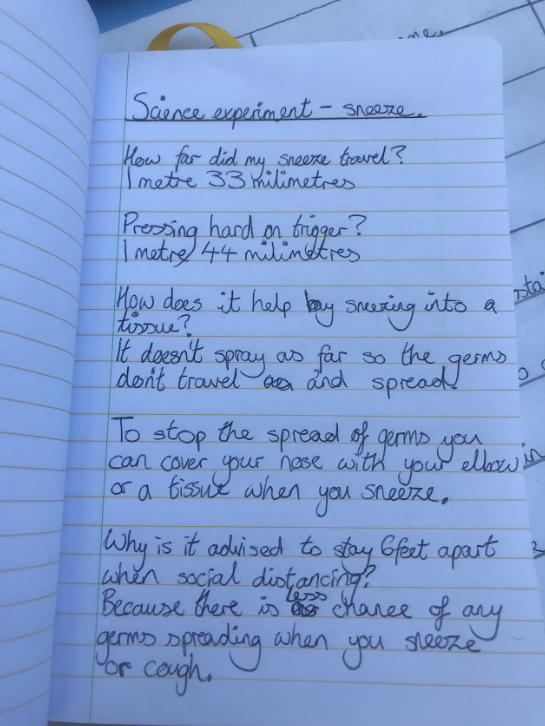 Science experiment - sneeze.
How far did my sneeze travel?
1 metre 33 milimetres
Pressing hard on trigger?
1 metre 44 milimetres
How does it help by sneezing into a
tissue?
It doesn't spray as far so the germs
don't travel and spread.
To stop the spread of germs you
can cover your nose with your elbow
or a tissue when you sneeze.
Why is it advised to stay 6feet apart
when social distancing?
Because there is less chance of any
germs spreading when you sneeze
or cough.